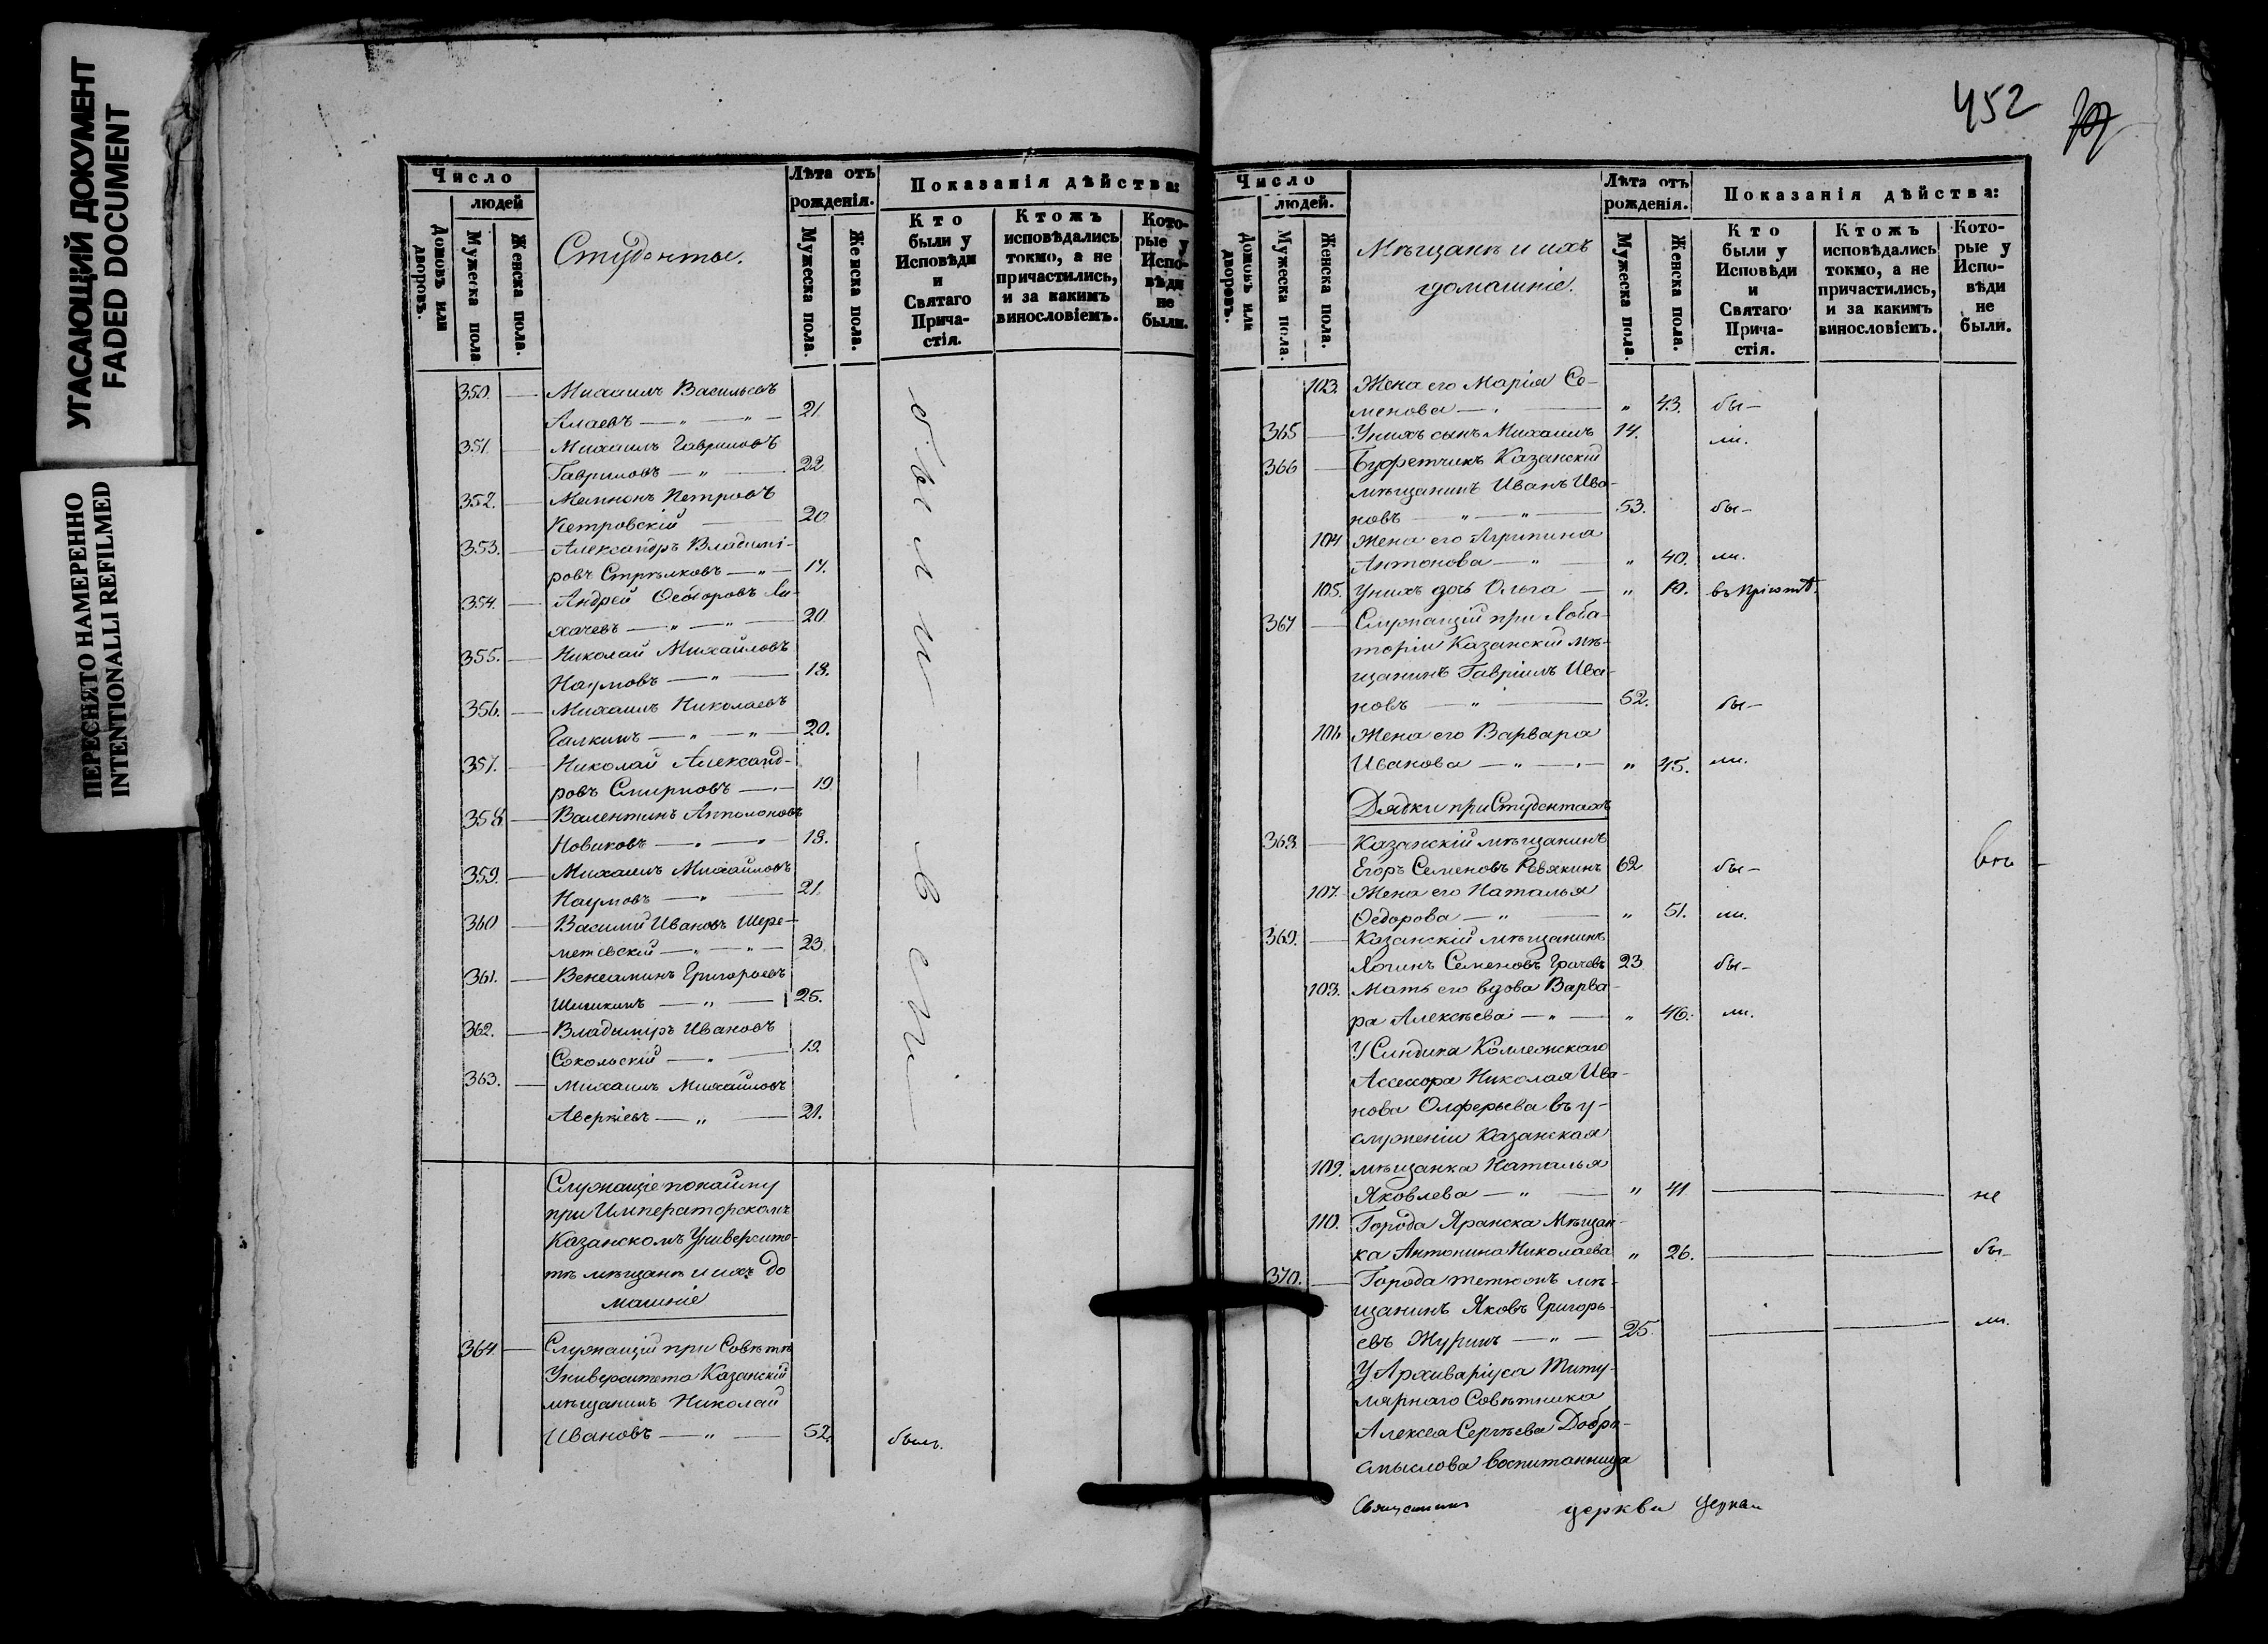 УГАСАЮЩИЙ ДОКУМЕНТ
FADED DOCUMENT
ПЕРЕСНЯТО НАМЕРЕННО
INTENTIONALLI REFILMED
Число
людей
Домовъ или дворовъ.
Мужеска пола
Женска пола.
Студенты.
Лѣта отъ рожденія.
Мужеска пола.
Женска пола.
Показанія дѣйства:
Кто были у Исповѣди и Святаго Прича-стія.
Ктожъ исповѣдались токмо, а не причастились, и за какимъ винословіемъ.
Кото-рые у Испо-вѣди не были.
350. Михаилъ Васильевъ
Алаевъ — „ — 21.
351. Михаилъ Гавриловъ
Гавриловъ — „ — 22.
352. Мемнонъ Петровъ
Петровскій — 20.
353. Александръ Владимі-
ровъ Стрѣлковъ — „ — 17.
354. Андрей Ѳедоровъ Ли-
хачевъ — „ — „ — 20.
355. Николай Михайловъ
Наумовъ — „ — 18.
356. Михаилъ Николаевъ
Галкинъ — „ — „ — 20.
357. Николай Александ-
ровъ Смирновъ — 19
358. Валентинъ Апполоновъ
Новиковъ — „ — „ 18.
359. Михаилъ Михайловъ
Наумовъ — „ — 21.
360 Василій Ивановъ Шере-
метевскій — „ — „ — 23.
361. Веніаминъ Григорьевъ
Шишкинъ — „ — 25.
362. Владиміръ Ивановъ
Сокольскій — „ — 19.
363. Михаилъ Михайловъ
Аверкіевъ — „ — 21.
были - - всѣ
Служащіе по найму
при Императорскомъ
Казанскомъ Университе-
тѣ мѣщанъ и ихъ до
машніе
364. Служащій при Совѣтѣ
Университета Казанскій
мѣщанинъ Николай
Ивановъ — „ — 52. былъ.
452
Число
людей.
Домовъ или дворовъ.
Мужеска пола.
Женска пола.
Мѣщанъ и ихъ
домашніе.
Лѣта отъ рожденія.
Мужеска пола.
Женска пола.
Показанія дѣйства:
Кто были у Исповѣди и Святаго Прича-стія.
Ктожъ исповѣдались токмо, а не причастились, и за какимъ винословіемъ.
Кото-рые у Испо-вѣди не были.
103. Жена его Марія Се-
менова — „ — „ 43. бы-
365 У нихъ сынъ Михаилъ 14. ли.
366 Буфетчикъ Казанскій
мѣщанинъ Иванъ Ива-
новъ — „ — „ — 53. бы-
104 Жена его Агрипина
Антонова — „ — „ 40. ли.
105. У нихъ дочь Ольга — „ 10. въ пріютѣ.
367 Служащій при Лоба-
торіи Казанскій мѣ-
щанинъ Гавріилъ Ива-
новъ — „ — 52. бы-
106 Жена его Варвара
Иванова — „ — „ — „ 45. ли.
Дядьки при Студентахъ
368. Казанскій мѣщанинъ
Егоръ Семеновъ Ревякинъ 62 бы-
107. Жена его Наталья
Ѳедорова — „ — „ 51. ли.
369. Казанскій мѣщанинъ
Логинъ Семеновъ Грачевъ 23 бы-
108. Мать его вдова Варва-
ра Алексѣева — „ — „ 46. ли.
У Синдика Коллежскаго
Ассесора Николая Ива-
нова Олферьева въ у-
служеніи Казанская
109. мѣщанка Наталья
Яковлева — „ — „ 41 не
110. Города Яранска Мѣщан-
ка Антонина Николаева „ 26. бы-
370. Города Тетюшъ мѣ-
щанинъ Яковъ Григорь-
евъ Журинъ — „ — 25. ли.
У Архиваріуса Титу-
лярнаго Совѣтника
Алексѣя Сергѣева Добро-
смыслова воспитанница
Священникъ церкви